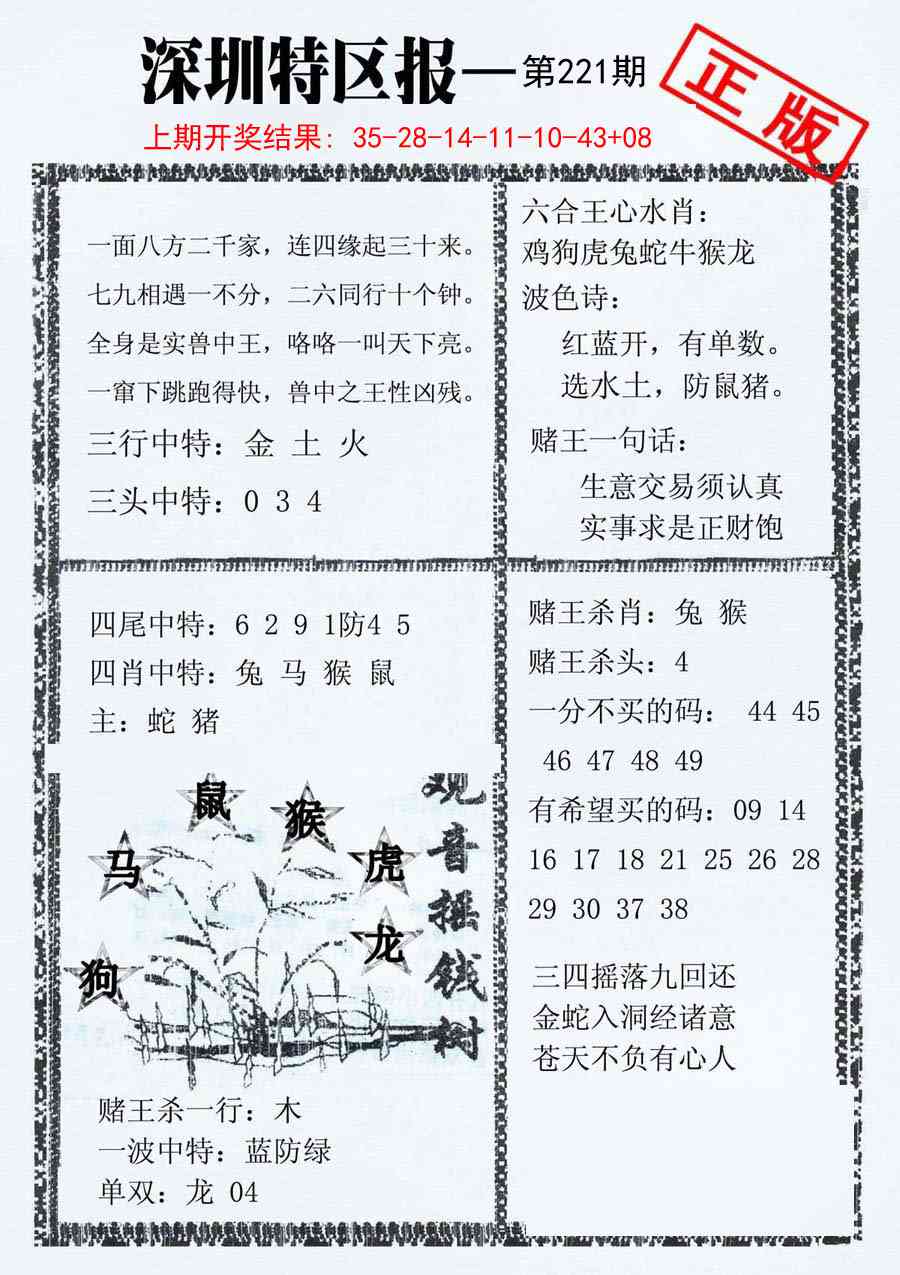 深圳特区报—第221期
正版
上期开奖结果: 35-28-14-11-10-43+08
一面八方二千家，连四缘起三十来。
七九相遇一不分，二六同行十个钟。
全身是实兽中王，咯咯一叫天下亮。
一窜下跳跑得快，兽中之王性凶残。
三行中特：金 土 火
三头中特：0 3 4
六合王心水肖：
鸡狗虎兔蛇牛猴龙
波色诗：
红蓝开，有单数。
选水土，防鼠猪。
赌王一句话：
生意交易须认真
实事求是正财饱
四尾中特：6 2 9 1防4 5
四肖中特：兔 马 猴 鼠
主：蛇 猪
观音摇钱树
鼠
猴
马
虎
龙
狗
赌王杀一行：木
一波中特：蓝防绿
单双：龙 04
赌王杀肖：兔 猴
赌王杀头：4
一分不买的码： 44 45
46 47 48 49
有希望买的码：09 14
16 17 18 21 25 26 28
29 30 37 38
三四摇落九回还
金蛇入洞经诸意
苍天不负有心人